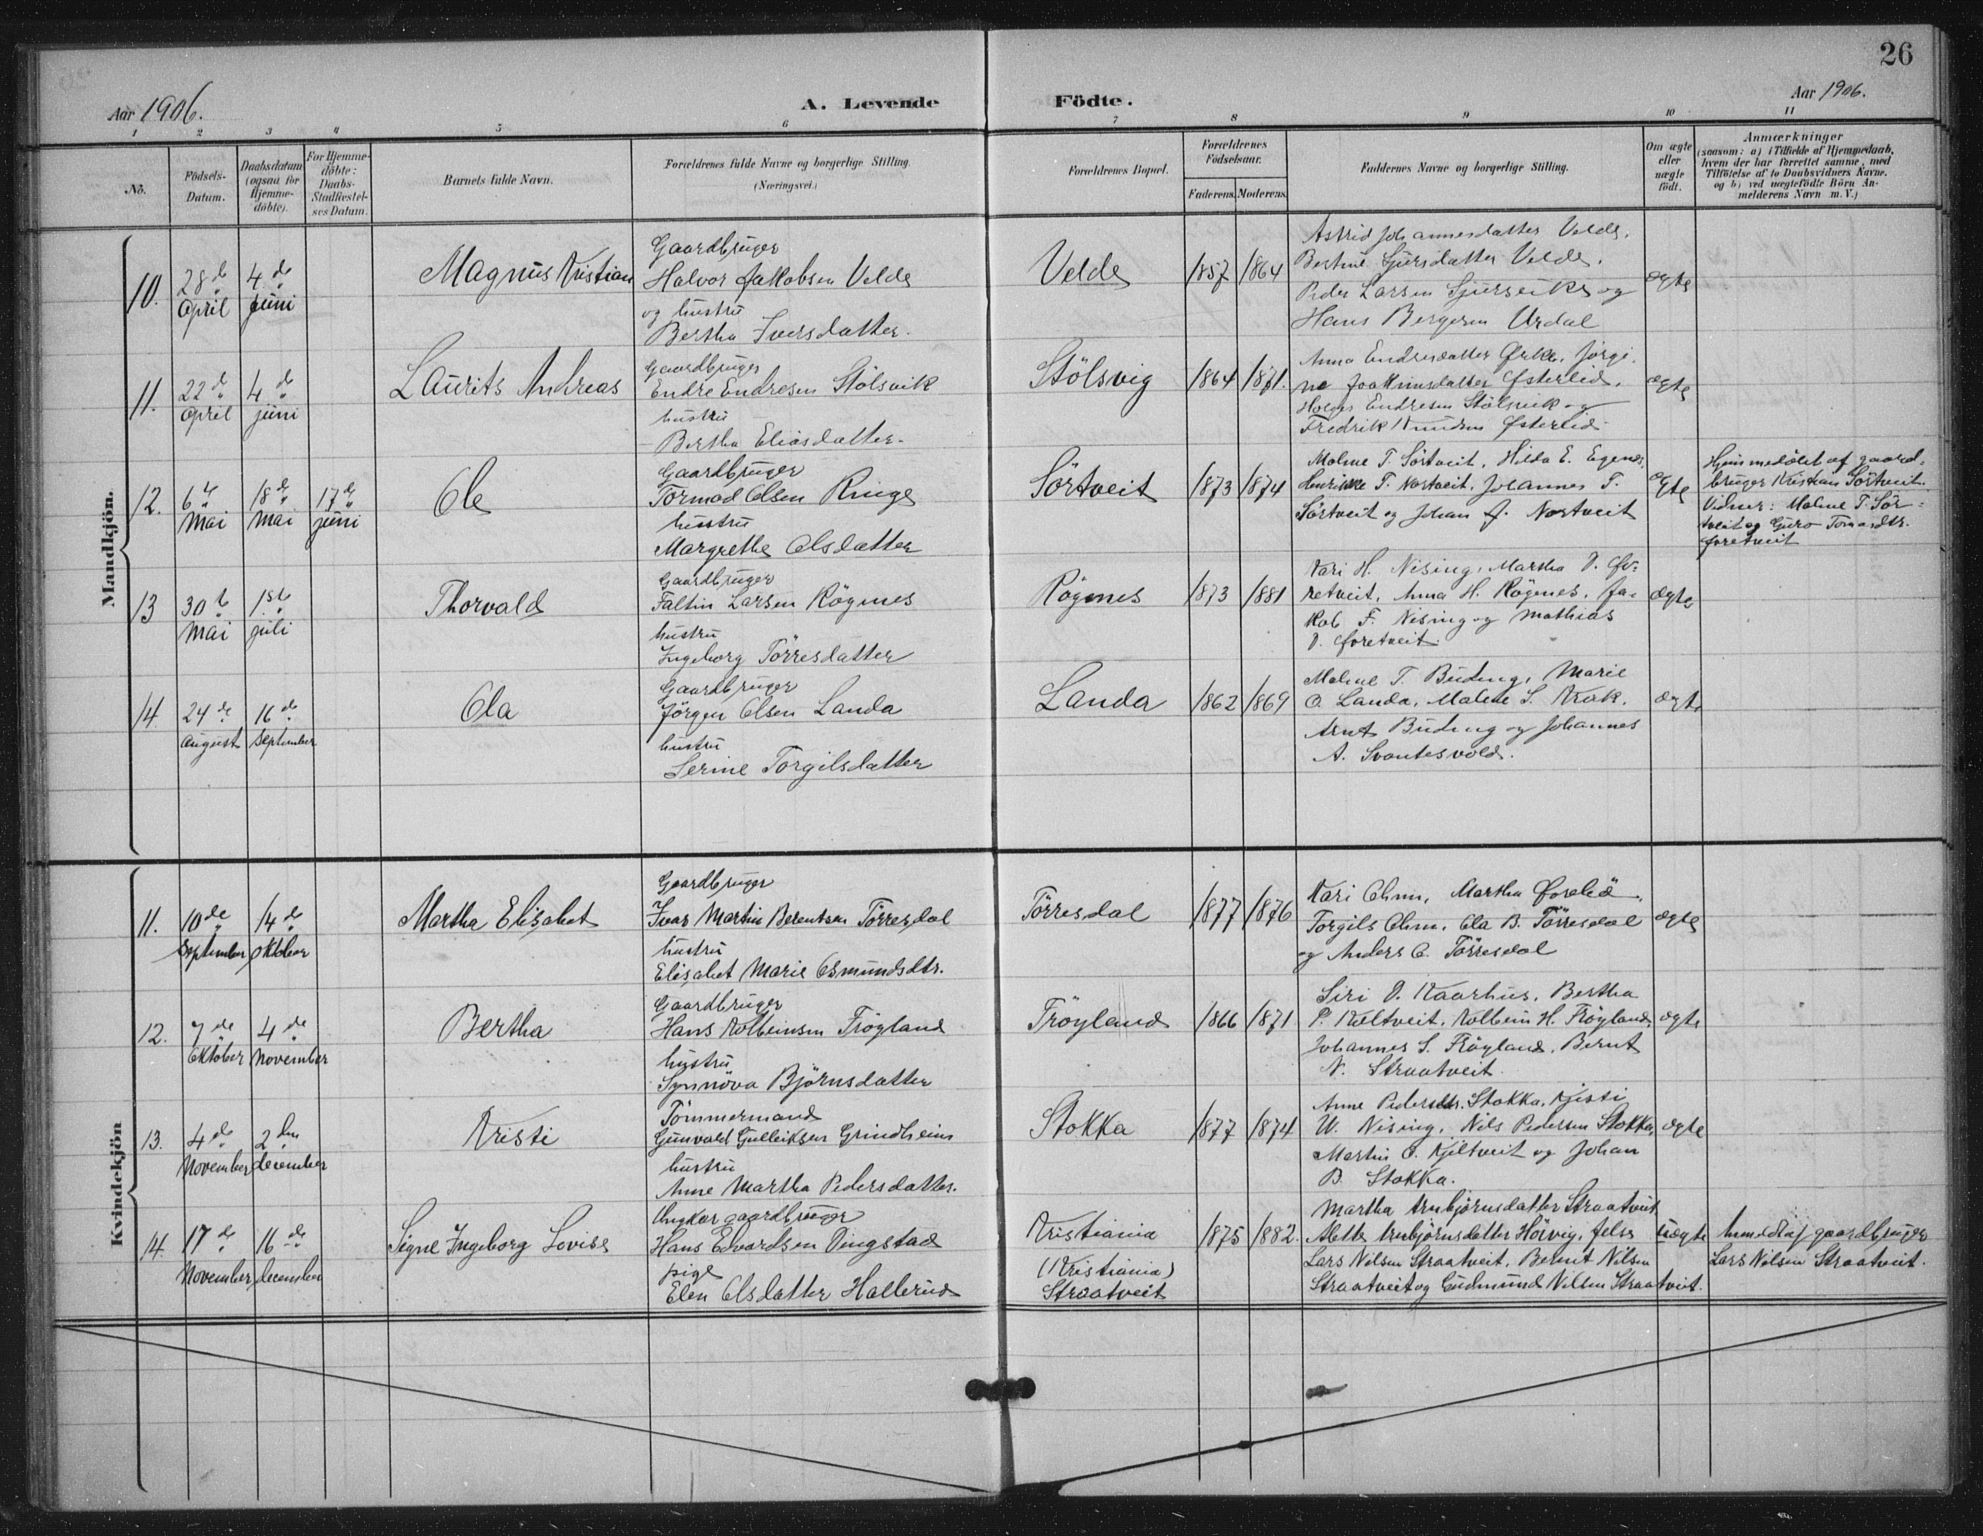 26
Aar 1906.
A. Levende
Födte.
Aar 1906.
1 2 3 4 5 6 7 8 9 10 11
No.
Födsels-
Datum.
Daabsdatum
(ogsaa for
Hjemme-
döbte).
For Hjemme-
döbte:
Daabs-
Stadfæstel-
ses Datum.
Barnets fulde Navn.
Forældrenes fulde Navne og borgerlige Stilling.
(Næringsvei.)
Forældrenes Bopæl.
Forældrenes
Födselsaar.
Faderens. Moderens.
Faddernes Navne og borgerlige Stilling.
Om ægte
eller
uægte
födt.
Anmærkninger
(saasom: a) i Tilfælde af Hjemmedaab,
hvem der har forrettet samme, med
Tilföielse af to Daabsvidners Navne,
og b) ved uægtefödte Börn An-
melderens Navn m. V.)
Mandkjön.
10.
28de
April
4de
juni
Magnus Kristian
Gaardbruger
Halvor Jakobsen Velde
og hustru
Bertha Iversdatter.
Velde
1857 1864
Astrid Johannesdatter Velde,
Bertine Sjursdatter Velde,
Peder Larsen Sjurseike og
Hans Bergesen Urdal
ægte
11.
22de
april
4de
juni
Laurits Andreas
Gaardbruger
Endre Endresen Stölsvik
hustru
Bertha Eliasdatter.
Stölsvig
1864 1871.
Anna Endresdatter Ørke, Jørgi-
ne Joakimsdatter Østerlid,
Endresen Stölsvik og
Fredrik Knudsen Østerlid.
ægte
12.
6te
Mai
18de
Mai
17de
juni
Ole
Gaardbruger
Tormod Olsen Ringe
hustru
Margrethe Olsdatter
Sörtveit
1873 1874
Malene T. Sörtveit, Hilda E. Egenes,
Henrikke T. Nortveit, Johannes T.
Sörtveit og Johan J. Nortveit
ægte
Hjemmedöbt af gaard-
bruger Kristian Sörtveit.
Vidner: Malene T. Sör-
tveit og Guro Tormodsdtr.
Øvretveit
13
30te
Mai
1ste
juli
Thorvald
Gaardbruger
Faltin Larsen Rögnes
hustru
Ingeborg Törresdatter
Rögenes
1873 1881
Kari H. Nising, Martha V. Øv-
retveit, Anna H. Rögenes, Ja-
kob F. Nising og Mathias
V. Øvretveit.
ægte
14
24de
august
16de
September
Ola
Gaardbruger
Jörgen Olsen Landa
hustru
Serine Torgilsdatter
Landa
1862 1869
Malene T. Buding, Marie
O. Landa, Malene S. Krak,
Arnt Buding og Johannes
A. Svantesvold.
ægte
Kvindekjön
11.
10de
September
14de
Oktober
Martha Elisabet
Gaardbruger
Ivar Martin Berentsen Törresdal
hustru
Elisabet Marie Osmundsdtr.
Törresdal
1877 1876
Kari Ohm, Martha Øvrebö,
Torgils Ohm, Ola B. Törresdal
og Anders O. Törresdal
ægte
12.
7de
Oktober
4de
November
Bertha
Gaardbruger
Hans Kolbeinsen Fröyland
hustru
Synnöva Björnsdatter
Fröyland
1866 1871
Siri V. Kaarhus, Bertha
P. Keltveit, Kolbein H. Fröyland,
Johannes S. Fröyland, Bernt
N. Straatveit.
ægte
13.
4de
November
2den
december
Kristi
Tömmermand
Gunvald Gulleiksen Grindheim
hustru
Anne Martha Pedersdatter.
Stokka
1877 1874
Anne Pedersdtr. Stokka, Kristi
W. Nising, Nils Pedersen Stokka,
Martin O. Kjeltveit og Johan
B. Stokka.
ægte
14.
17de
November
16de
december
Signe Ingeborg Lovise
Ungkar gaardbruger
Hans Edvardsen Dingstad
pige
Elen Olsdatter Hallerud
Kristiania
(Kristiania)
Straatveit
1875 1882.
Martha Arnbjörnsdatter Straatveit
Mette Arnbjörnsdatter Hörvig,
Lars Nilsen Straatveit, Bernt Nilsen
Straatveit og Gudmund Nilsen Straatveit.
uægte
Anmeldt af gaardbruger
Lars Nilsen Straatveit.